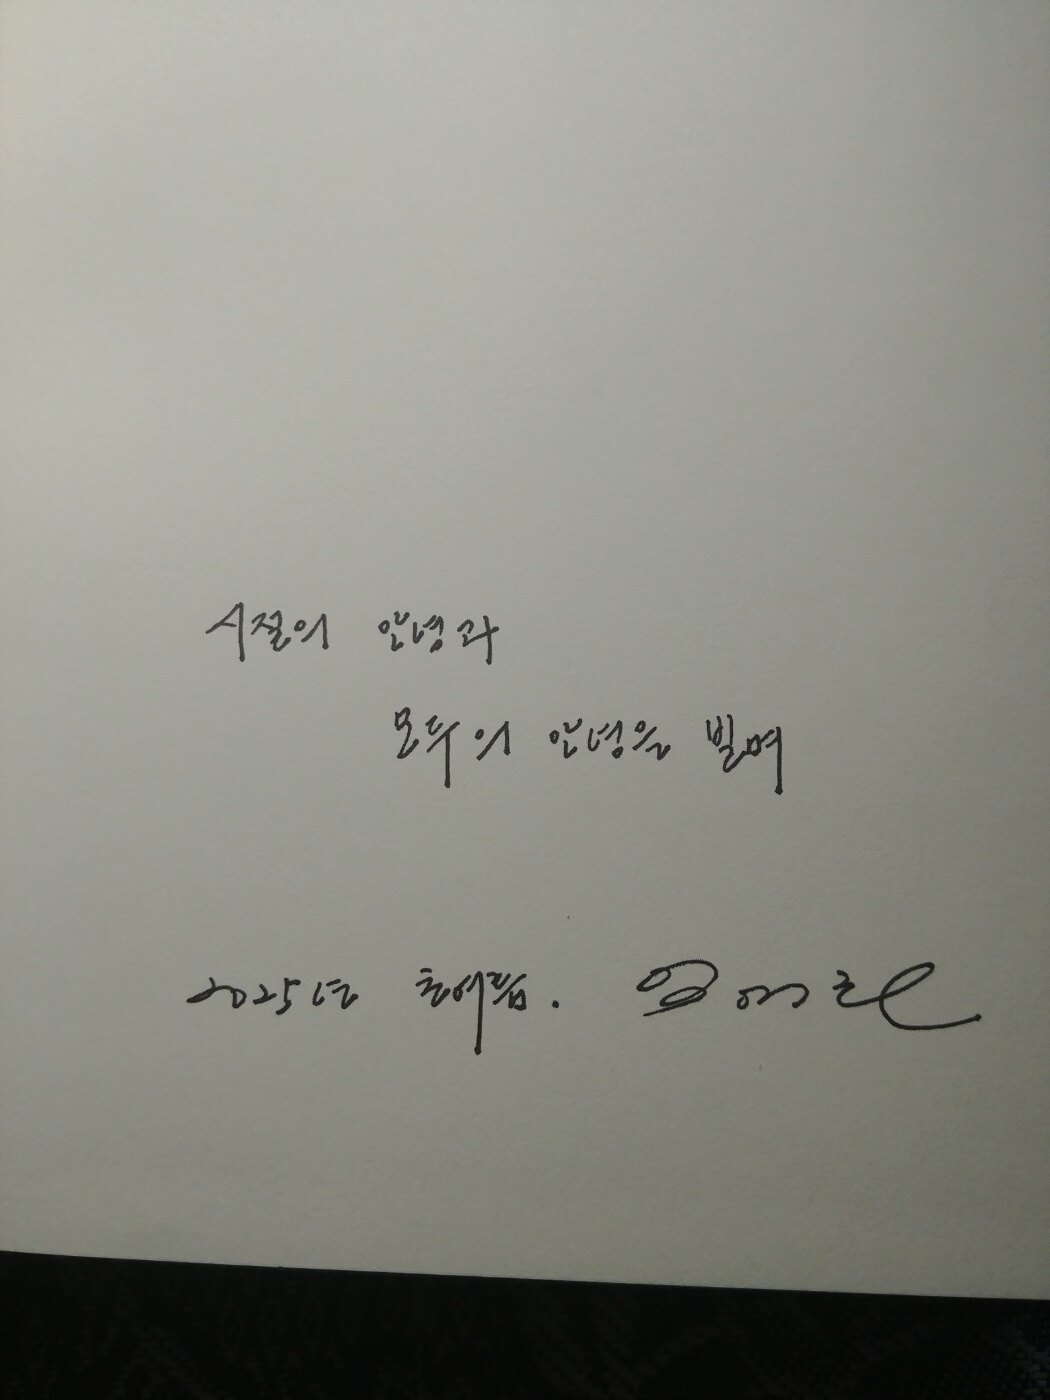 시절의 안녕과
모두의 안녕을 빌며
2025년 초여름.